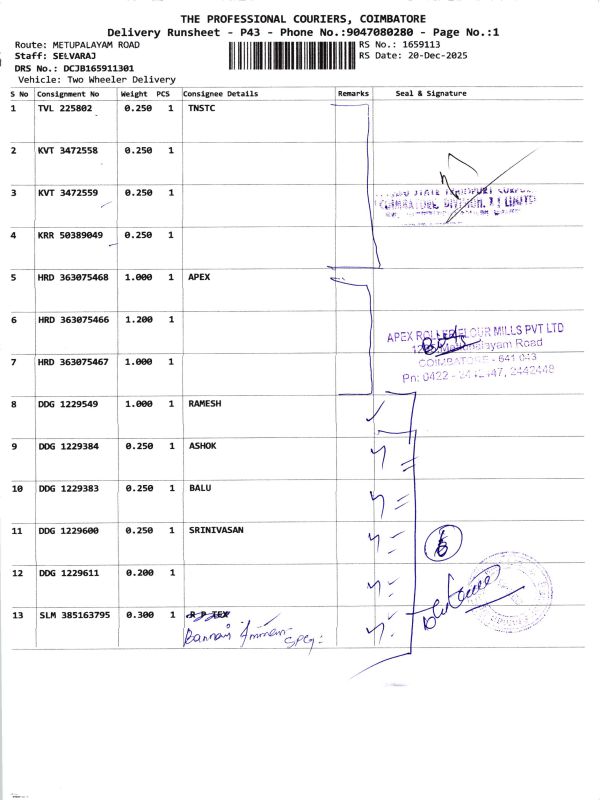 THE PROFESSIONAL COURIERS, COIMBATORE
Delivery Runsheet - P43 - Phone No.:9047080280 - Page No.:1
Route: METUPALAYAM ROAD RS No.: 1659113
Staff: SELVARAJ RS Date: 20-Dec-2025
DRS No.: DCJB165911301
Vehicle: Two Wheeler Delivery
S No Consignment No Weight PCS Consignee Details Remarks Seal & Signature
1 TVL 225802 0.250 1 TNSTC
2 KVT 3472558 0.250 1
3 KVT 3472559 0.250 1
STATE TRANSPORT
COIMBATORE DIVISION. LIMITED
4 KRR 50389049 0.250 1
5 HRD 363075468 1.000 1 APEX
6 HRD 363075466 1.200 1
APEX ROLLER FLOUR MILLS PVT LTD
Mettupalayam Road
7 HRD 363075467 1.000 1
COIMBATORE - 641 043
Pn: 0422 - 2442448
8 DDG 1229549 1.000 1 RAMESH
9 DDG 1229384 0.250 1 ASHOK
10 DDG 1229383 0.250 1 BALU
11 DDG 1229600 0.250 1 SRINIVASAN
12 DDG 1229611 0.200 1
13 SLM 385163795 0.300 1 R P TEX
Bannari Amman